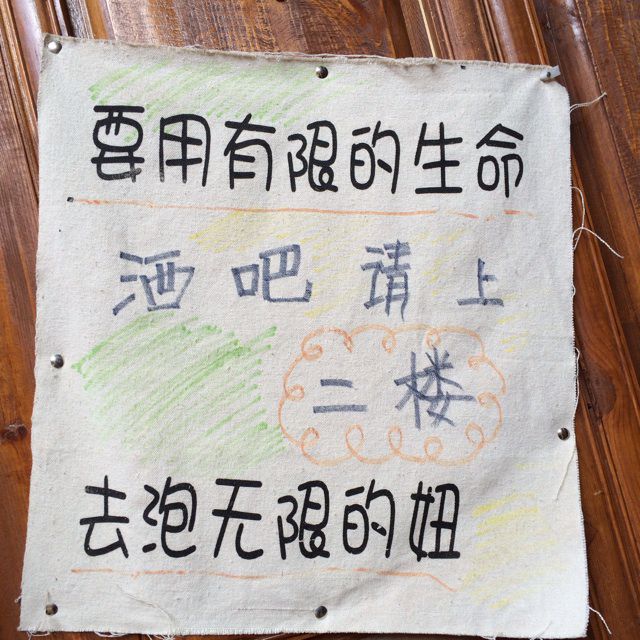 要用有限的生命
酒吧请上
二楼
去泡无限的妞